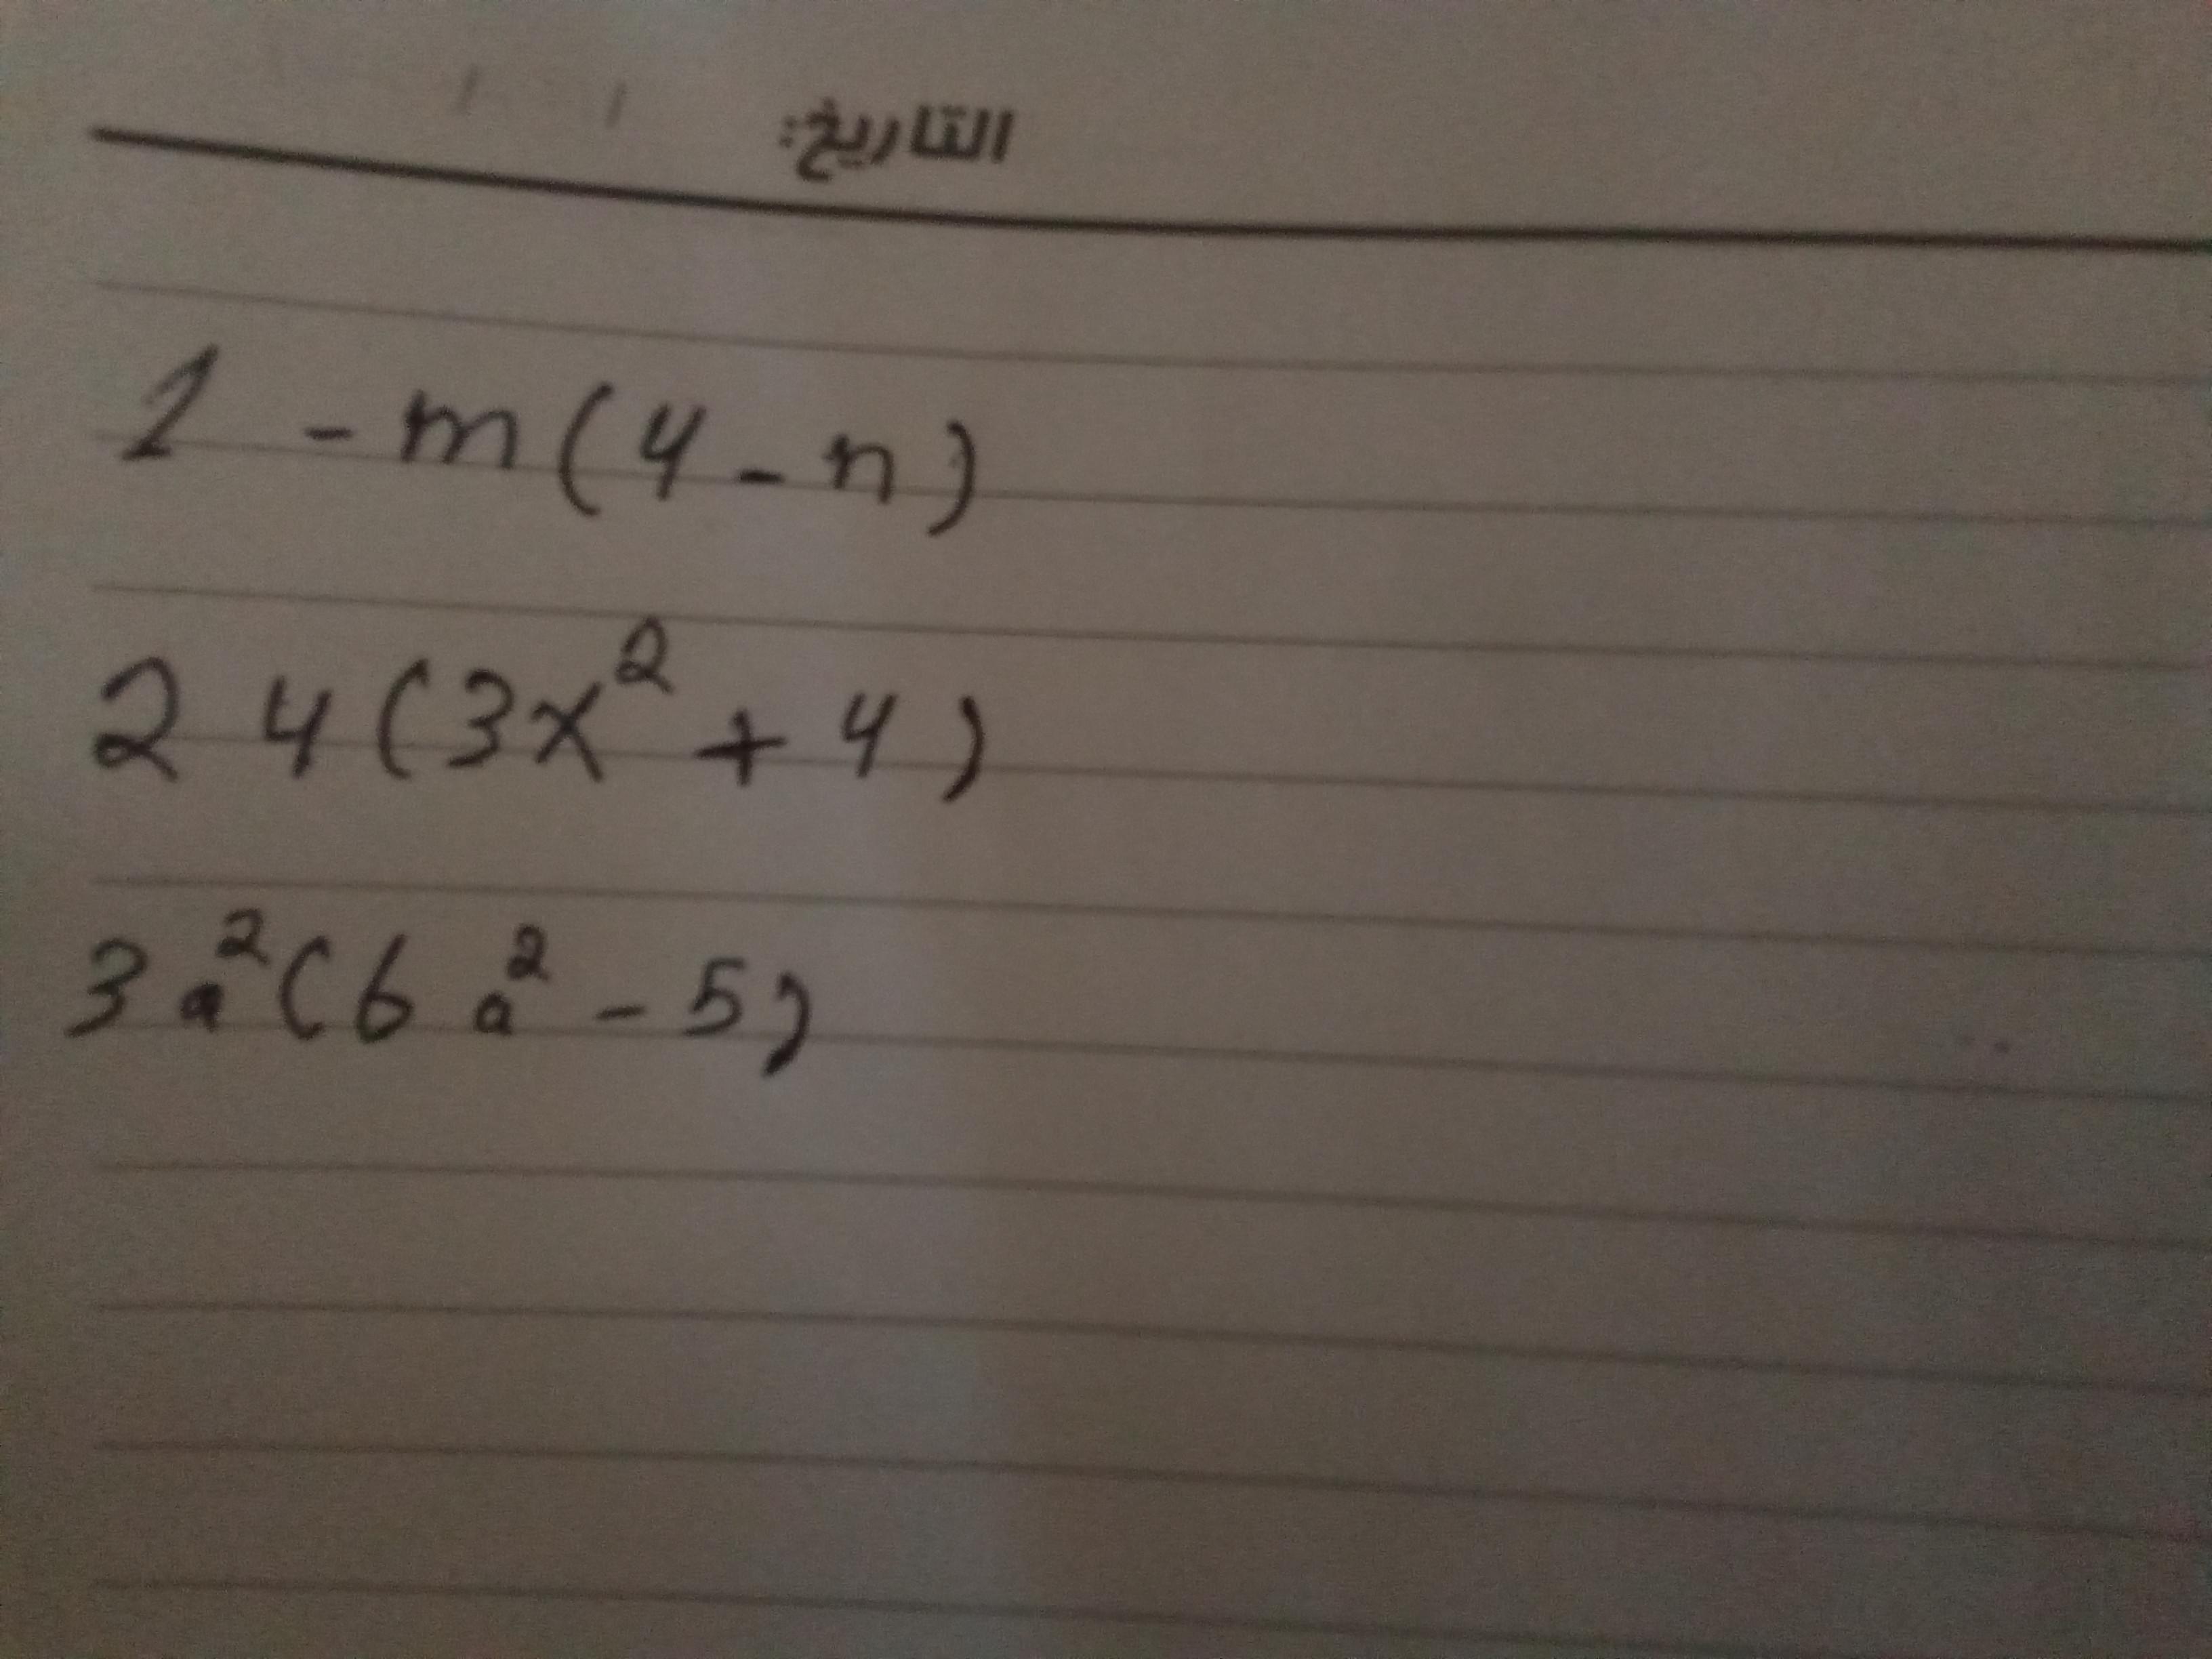 التاريخ: / /
1 - m (4 - n)
2 4 (3x² + 4)
3 a² (6 a² - 5)